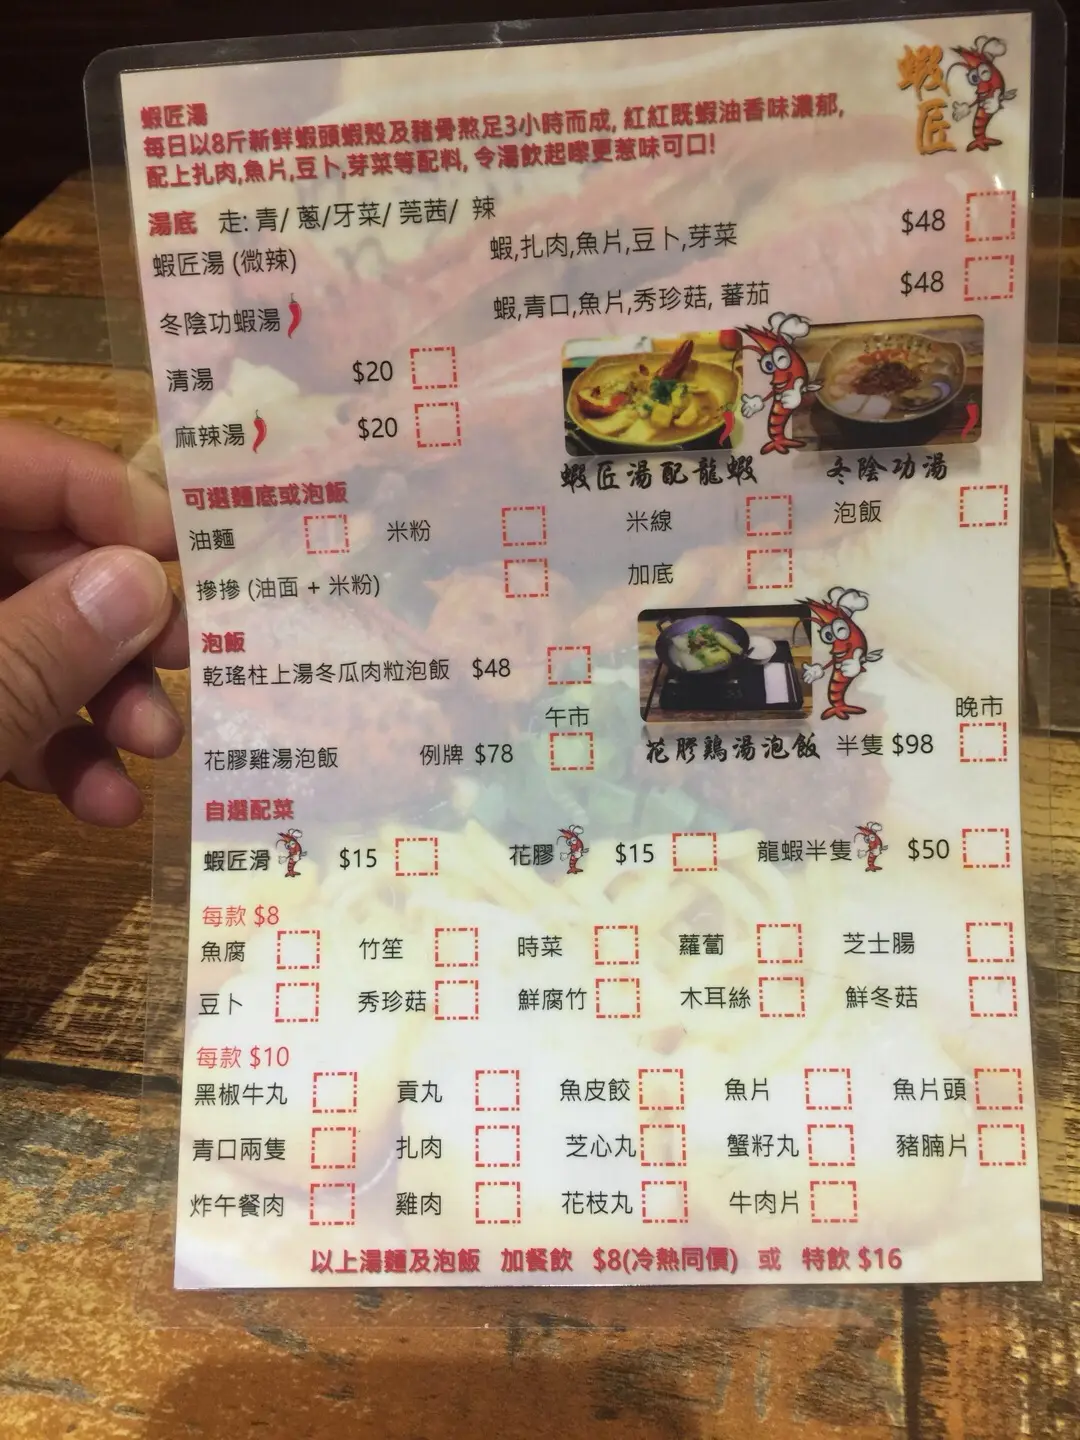 蝦匠
蝦匠湯
每日以8斤新鮮蝦頭蝦殼及豬骨熬足3小時而成, 紅紅既蝦油香味濃郁,
配上扎肉,魚片,豆卜,芽菜等配料, 令湯飲起嚟更惹味可口!
湯底 走: 青/ 蔥/牙菜/ 莞茜/ 辣
蝦匠湯 (微辣) 蝦,扎肉,魚片,豆卜,芽菜 $48
冬陰功蝦湯 蝦,青口,魚片,秀珍菇, 蕃茄 $48
清湯 $20
麻辣湯 $20
蝦匠湯配龍蝦 冬陰功湯
可選麵底或泡飯
油麵 米粉 米線 泡飯
摻摻 (油面 + 米粉) 加底
泡飯
乾瑤柱上湯冬瓜肉粒泡飯 $48
午市 晚市
花膠雞湯泡飯 例牌 $78 花膠鶏湯泡飯 半隻 $98
自選配菜
蝦匠滑 $15 花膠 $15 龍蝦半隻 $50
每款 $8
魚腐 竹笙 時菜 蘿蔔 芝士腸
豆卜 秀珍菇 鮮腐竹 木耳絲 鮮冬菇
每款 $10
黑椒牛丸 貢丸 魚皮餃 魚片 魚片頭
青口兩隻 扎肉 芝心丸 蟹籽丸 豬腩片
炸午餐肉 雞肉 花枝丸 牛肉片
以上湯麵及泡飯 加餐飲 $8(冷熱同價) 或 特飲 $16